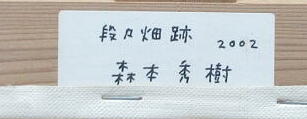 段々畑跡 2002
森本秀樹